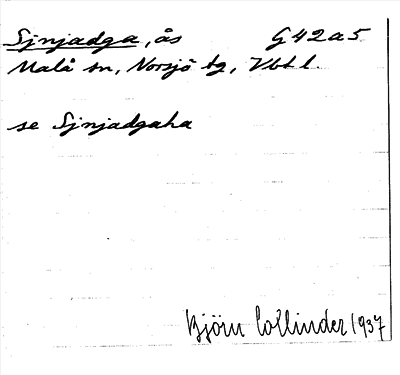 Sjnjadga, ås G42a5
Malå sn, Norsjö tg, Vbtl.
se Sjnjadgaha
Björn Collinder 1937